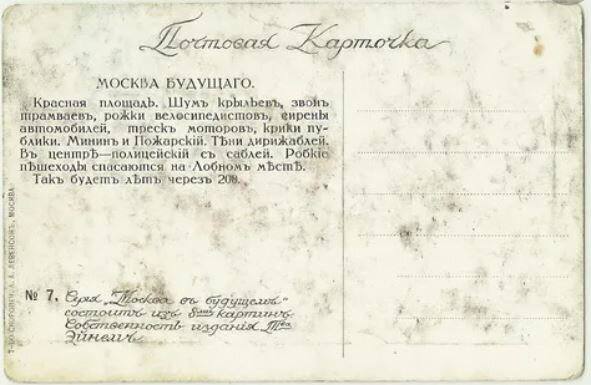 Почтовая Карточка
МОСКВА БУДУЩАГО.
Красная площадь. Шумъ крыльевъ, звонъ
трамваевъ, рожки велосипедистовъ, сирены
автомобилей, трескъ моторовъ, крики пу-
блики. Мининъ и Пожарскій. Тѣни дирижаблей.
Въ центрѣ—полицейскій съ саблей. Робкіе
пѣшеходы спасаются на Лобномъ мѣстѣ.
Такъ будетъ лѣтъ черезъ 200.
№ 7. Серія „Москва въ будущемъ"
состоитъ изъ 8ми картинъ.
Собственность изданія Тва
Эйнемъ.
Т-ВО СКОРОПЕЧ. А. А. ЛЕВЕНСОНЪ, МОСКВА